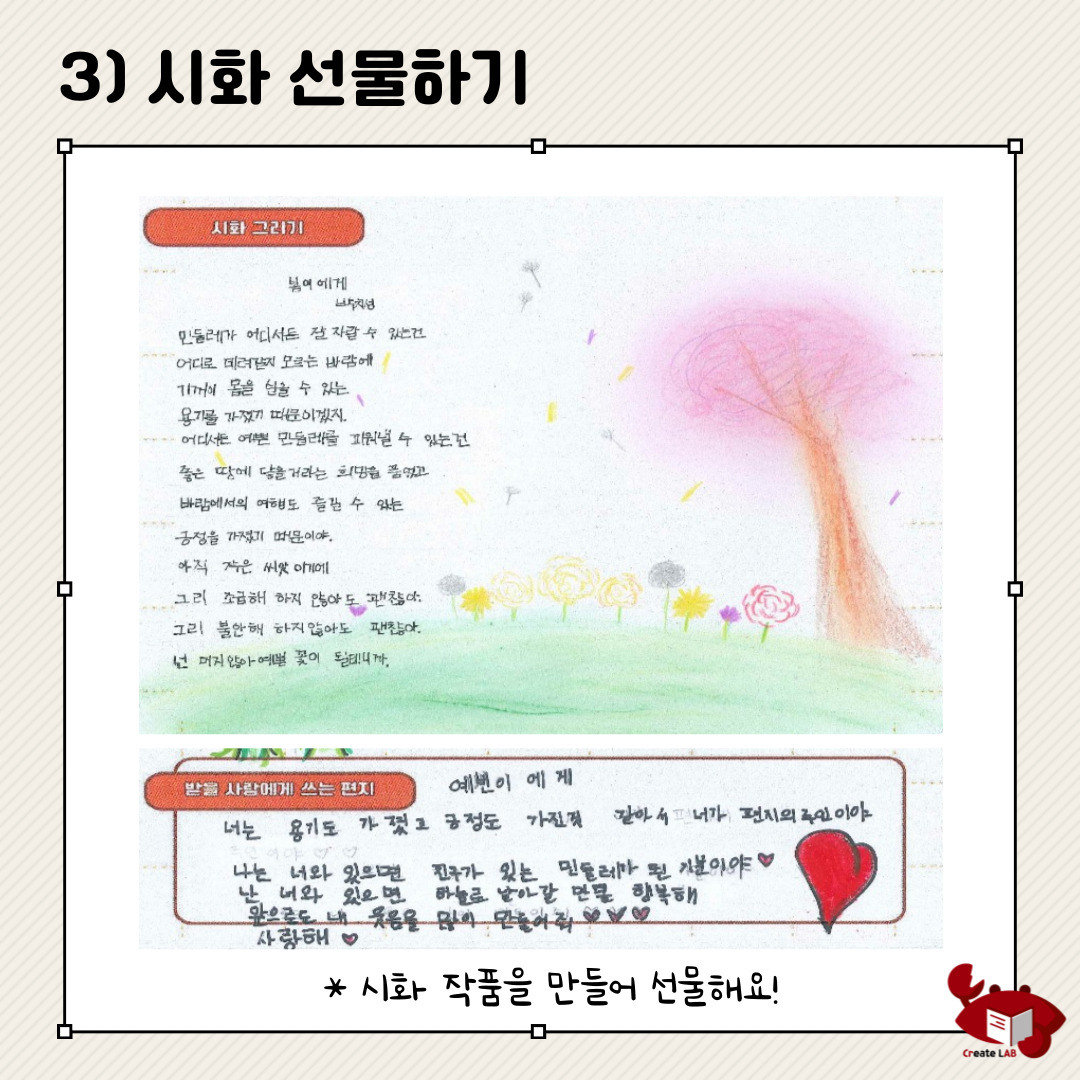 3) 시화 선물하기
시화 그리기
봄여에게
민들레가 어디서든 잘 자랄 수 있는건
어디로 데려갈지 모르는 바람에
기꺼이 몸을 실을 수 있는
용기를 가졌기 때문이겠지.
어디서든 예쁜 민들레를 피워낼 수 있는건
좋은 땅에 닿을거라는 희망을 품었고
바람에서의 여행도 즐길 수 있는
긍정을 가졌기 때문이야.
아직 작은 씨앗이기에
그리 조급해 하지 않아도 괜찮아.
그리 불안해 하지않아도 괜찮아.
넌 머지않아 예쁠 꽃이 될테니까.
받을 사람에게 쓰는 편지
예쁜이에게
너는 용기도 가졌고 긍정도 가진 너가 편지의 주인이야
나는 너와 있으면 친구가 있는 민들레가 된 기분이야
난 너와 있으면 하늘로 날아갈 만큼 행복해
앞으로도 내 웃음을 많이 만들어줘
사랑해
* 시화 작품을 만들어 선물해요!
Create LAB